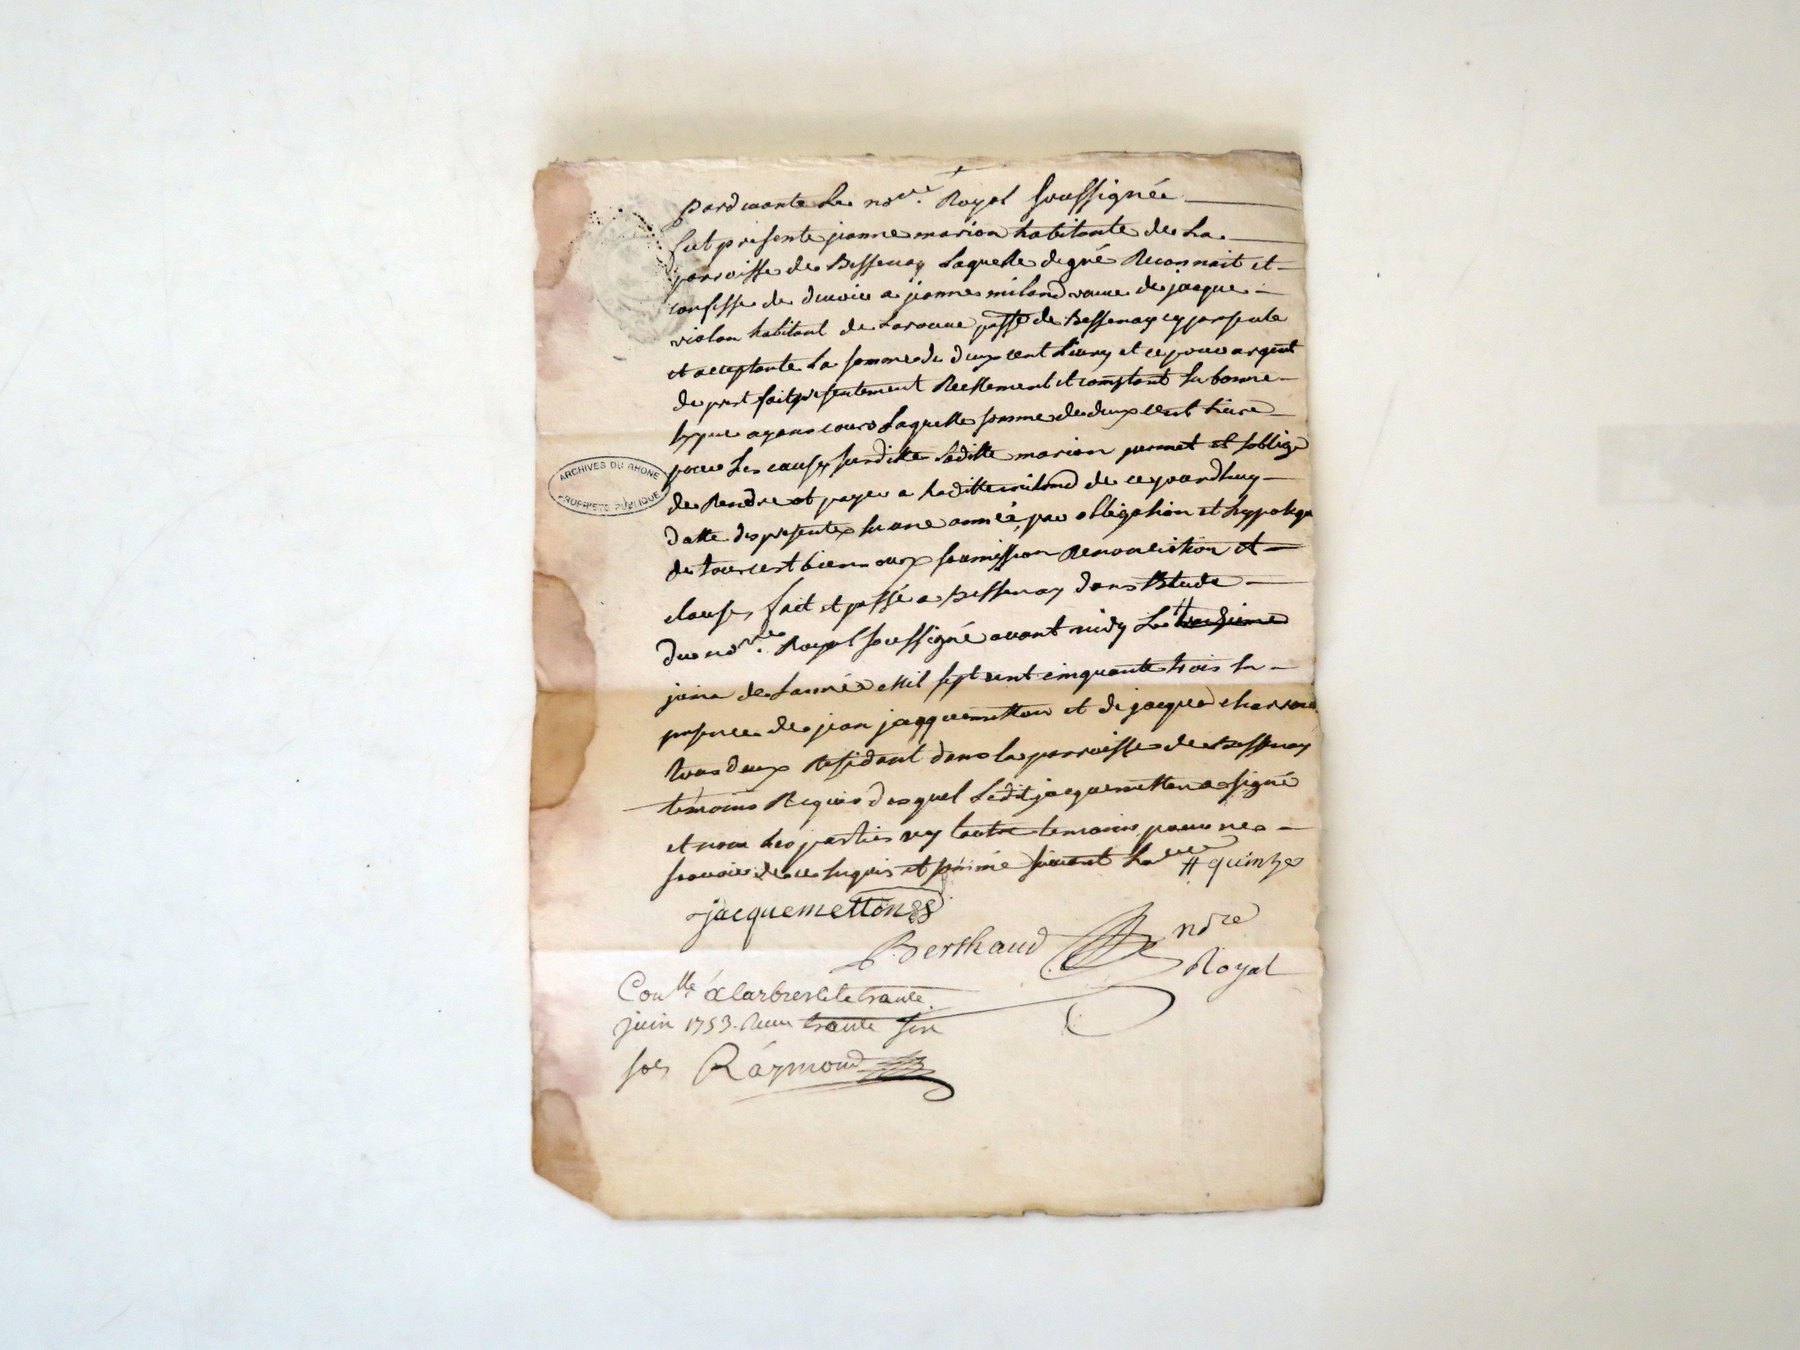 pardevante Le no.re Royal soussignée
fut presente jeanne marion habitante de La
parroisse de Bessenay Laquelle de gré Reconnait et
confesse de devoir a jeanne miland veuve de jacque
violon habitant de Laroue passe de Bessenay cy presente
et acceptante La somme de deux cent Livres et ce pour argent
de prest fait presentement Reellement et comptant en bonne
ayant cours Laquelle somme de deux cent Livre
pour Les causes susditte Laditte marion promet et soblige
de Rendre et payer a Laditte miland de ce jourdhuy
datte des presentes en une année, par obligation et hypoteque
de tous ses biens aux soumission Renonciation et
clauses, fait et passé a Bessenay dans Etude
du no.re Royal soussigné avant midy Le #
juin de Lannée Mil sept cent cinquante trois en
presence de jean jacquemetton et de jacque
tous deux Residant dans la parroisse de Bessenay
temoins Requis desquel Ledit jacquemetton a signé
et non Les parties ny lautre temoins pour ne
scavoir de ce enquis et # quinze
jacquemetton
Berthaud no.re
Royal
Con.lle à Larbresle le trante
juin 1753. Recu
sols Raymond
ARCHIVES DU RHONE
PROPRIETE PUBLIQUE